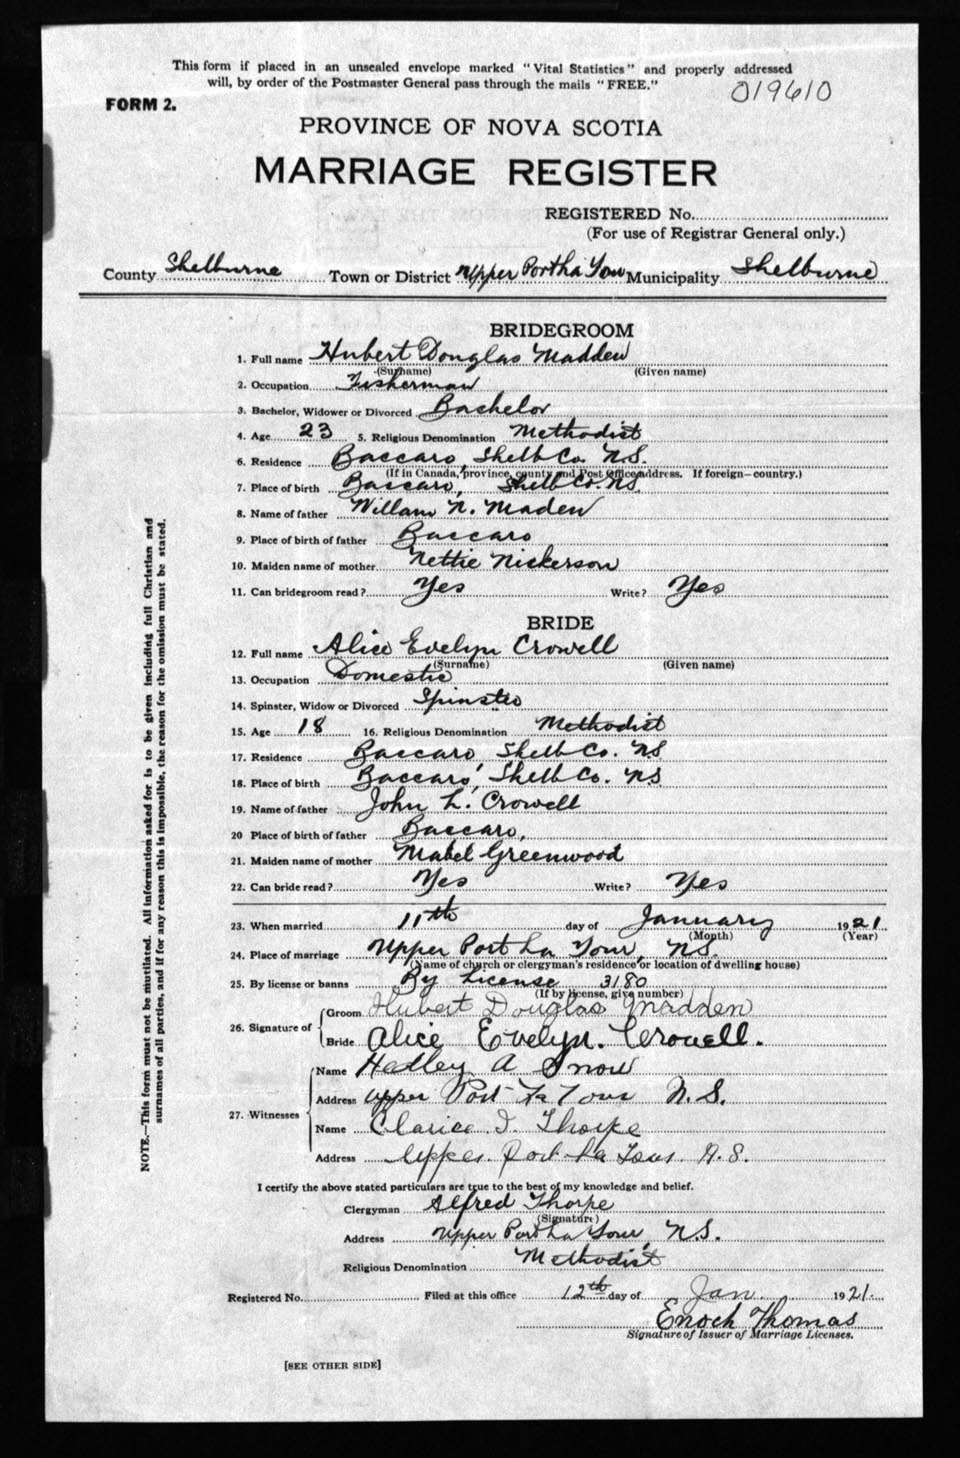 This form if placed in an unsealed envelope marked "Vital Statistics" and properly addressed
will, by order of the Postmaster General pass through the mails "FREE."
019610
FORM 2.
PROVINCE OF NOVA SCOTIA
MARRIAGE REGISTER
REGISTERED No.
(For use of Registrar General only.)
County Shelburne Town or District Upper Port La Tour Municipality Shelburne
BRIDEGROOM
1. Full name Hubert Douglas Madden
(Surname) (Given name)
2. Occupation Fisherman
3. Bachelor, Widower or Divorced Bachelor
4. Age 23 5. Religious Denomination Methodist
6. Residence Baccaro, Shelb Co. N.S.
(If in Canada, province, county and Post Office address. If foreign—country.)
7. Place of birth Baccaro, Shelb Co. NS.
8. Name of father Willam N. Maden
9. Place of birth of father Baccaro
10. Maiden name of mother Nettie Nickerson
11. Can bridegroom read? Yes Write? Yes
BRIDE
12. Full name Alice Evelyn Crowell
(Surname) (Given name)
13. Occupation Domestic
14. Spinster, Widow or Divorced Spinster
15. Age 18 16. Religious Denomination Methodist
17. Residence Baccaro, Shelb Co. N.S
18. Place of birth Baccaro, Shelb Co. N.S
19. Name of father John L. Crowell
20 Place of birth of father Baccaro,
21. Maiden name of mother Mabel Greenwood
22. Can bride read? Yes Write? Yes
23. When married 11th day of January 1921
(Month) (Year)
24. Place of marriage Upper Port La Tour, N.S.
(Name of church or clergyman's residence or location of dwelling house)
25. By license or banns By License 3180
(If by license, give number)
26. Signature of Groom Hubert Douglas Madden
Bride Alice Evelyn. Crowell.
27. Witnesses
Name Hedley A Snow
Address Upper Port La Tour N.S.
Name Clarice I. Thorpe
Address Upper Port La Tour N.S.
I certify the above stated particulars are true to the best of my knowledge and belief.
Clergyman Alfred Thorpe
(Signature)
Address Upper Port La Tour, N.S.
Religious Denomination Methodist
Registered No. Filed at this office 12th day of Jan. 1921.
Enoch Thomas
Signature of Issuer of Marriage Licenses.
[SEE OTHER SIDE]
NOTE.—This form must not be mutilated. All information asked for is to be given including full Christian and
surnames of all parties, and if for any reason this is impossible, the reason for the omission must be stated.